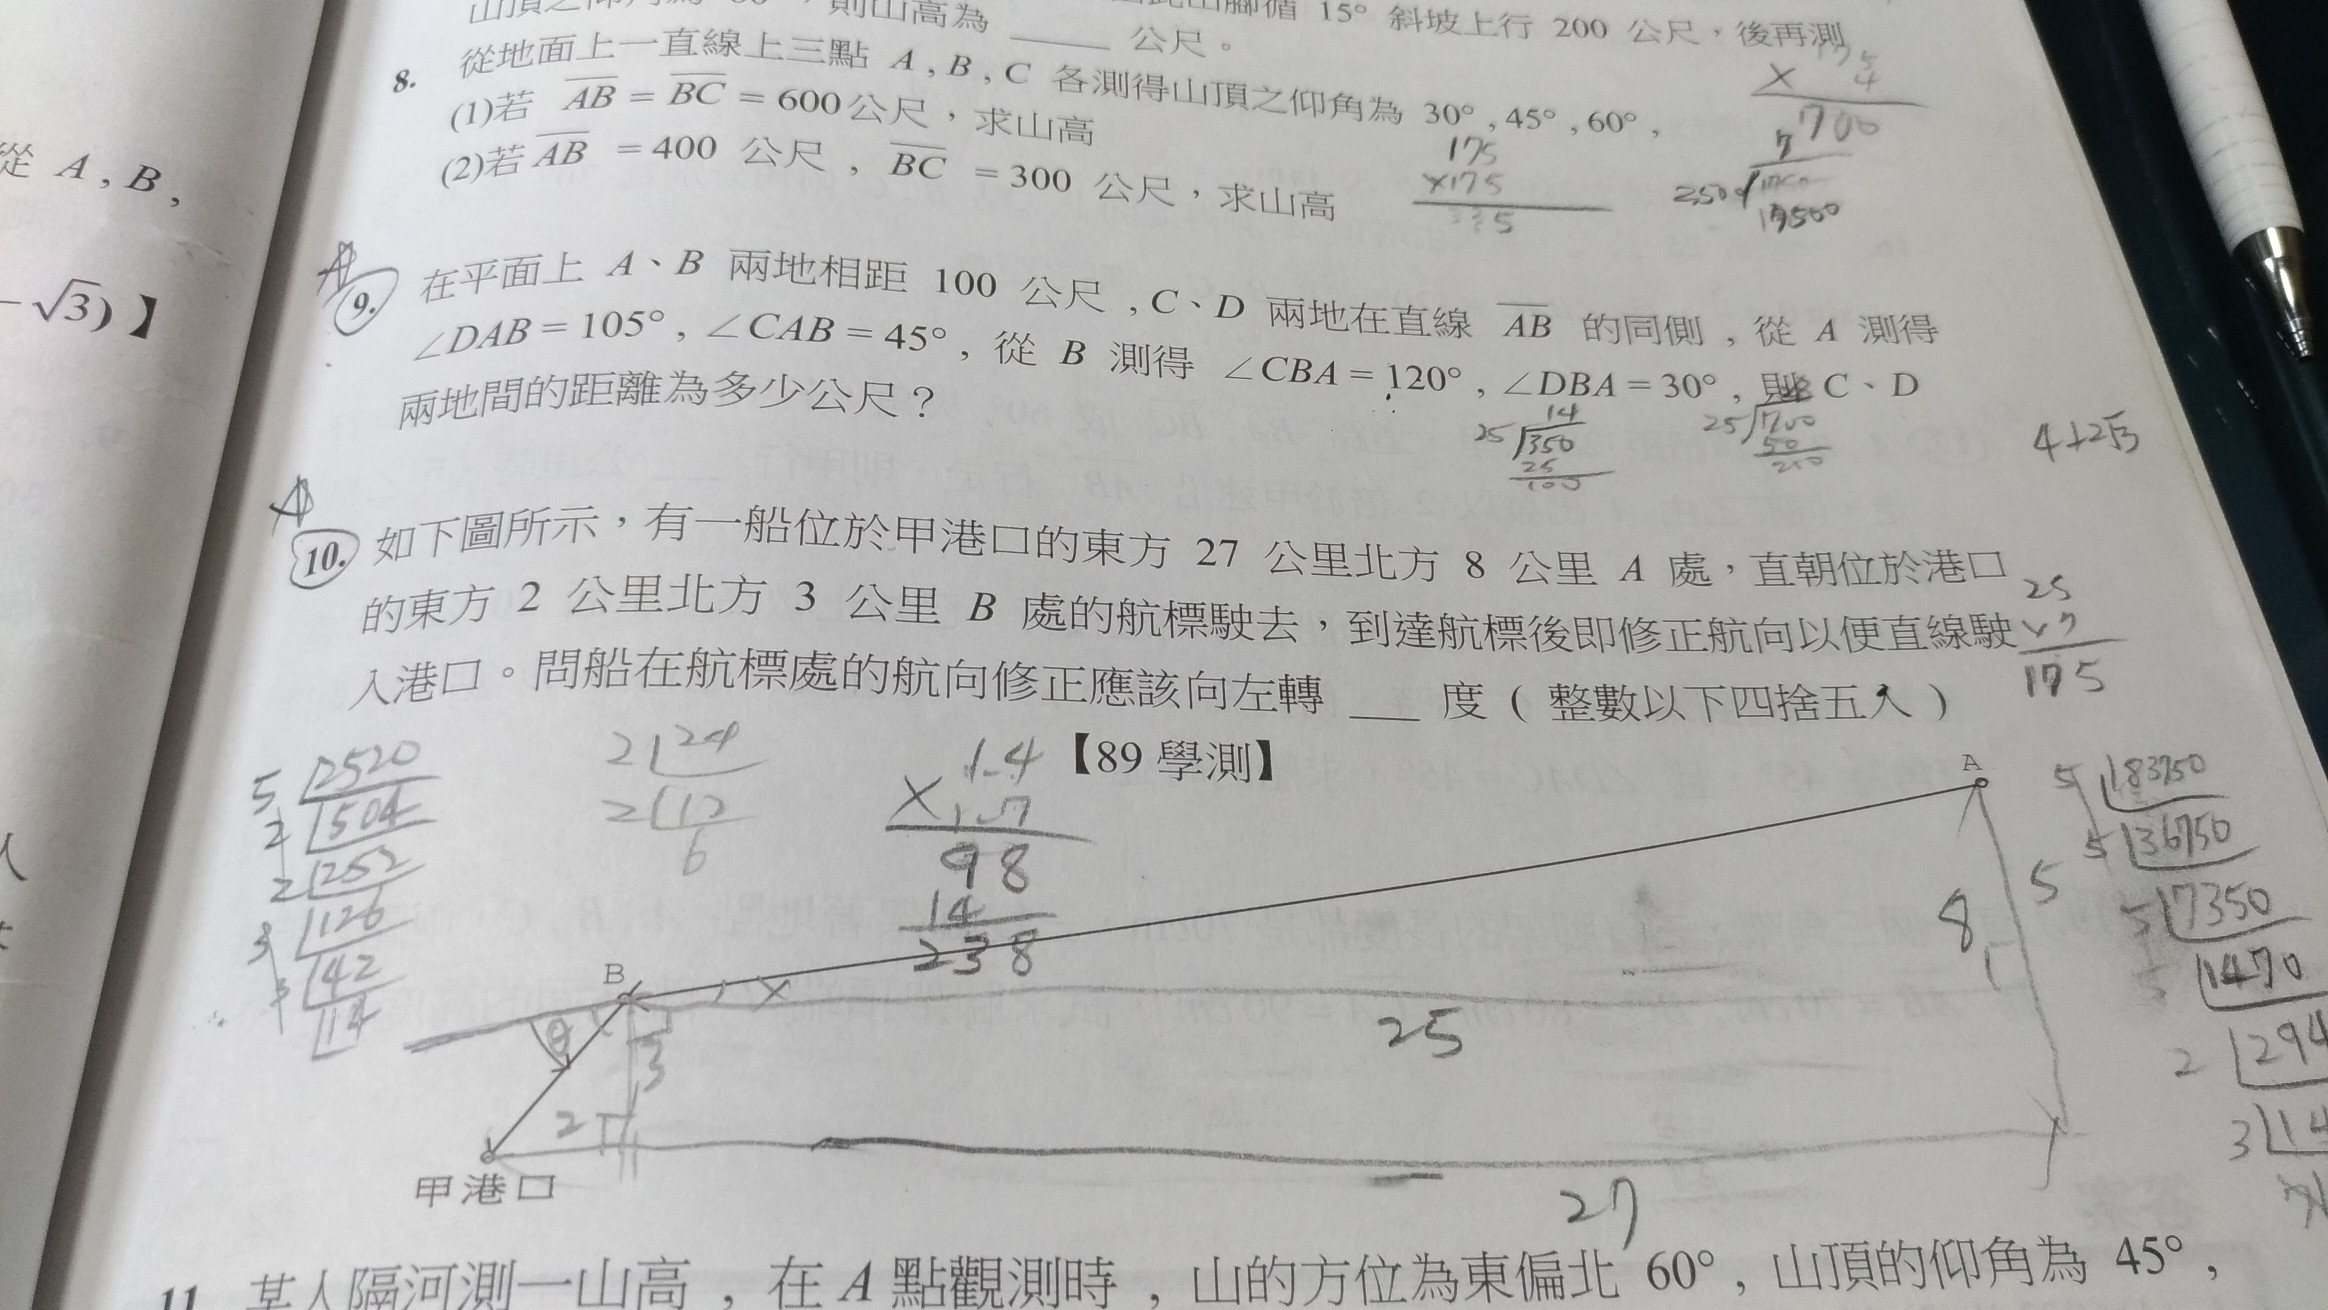 山頂之仰角為 60°，則山高為 ____ 公尺。
15° 斜坡上行 200 公尺，後再測
8. 從地面上一直線上三點 A , B , C 各測得山頂之仰角為 30° , 45° , 60° ,
(1)若 AB = BC = 600公尺，求山高
(2)若 AB = 400 公尺 , BC = 300 公尺，求山高
175
×175
175
× 4
700
從 A , B ,
− √3) 】
9. 在平面上 A、B 兩地相距 100 公尺 , C、D 兩地在直線 AB 的同側 , 從 A 測得
∠DAB = 105° , ∠CAB = 45° , 從 B 測得 ∠CBA = 120° , ∠DBA = 30° , 則 C、D
兩地間的距離為多少公尺？
14
25 350
25
100
4+2√3
10. 如下圖所示，有一船位於甲港口的東方 27 公里北方 8 公里 A 處，直朝位於港口
的東方 2 公里北方 3 公里 B 處的航標駛去，到達航標後即修正航向以便直線駛
入港口。問船在航標處的航向修正應該向左轉 ___ 度 ( 整數以下四捨五入 )
【89 學測】
25
×7
175
5 2520
2 504
2 252
3 126
42
14
2 24
2 12
6
1.4
× 1.7
98
14
238
A
B
×
θ
3
2
25
8
5
27
甲港口
5 183750
5 36750
5 7350
1470
2 294
3
11. 某人隔河測一山高 , 在 A 點觀測時 , 山的方位為東偏北 60° , 山頂的仰角為 45° ,